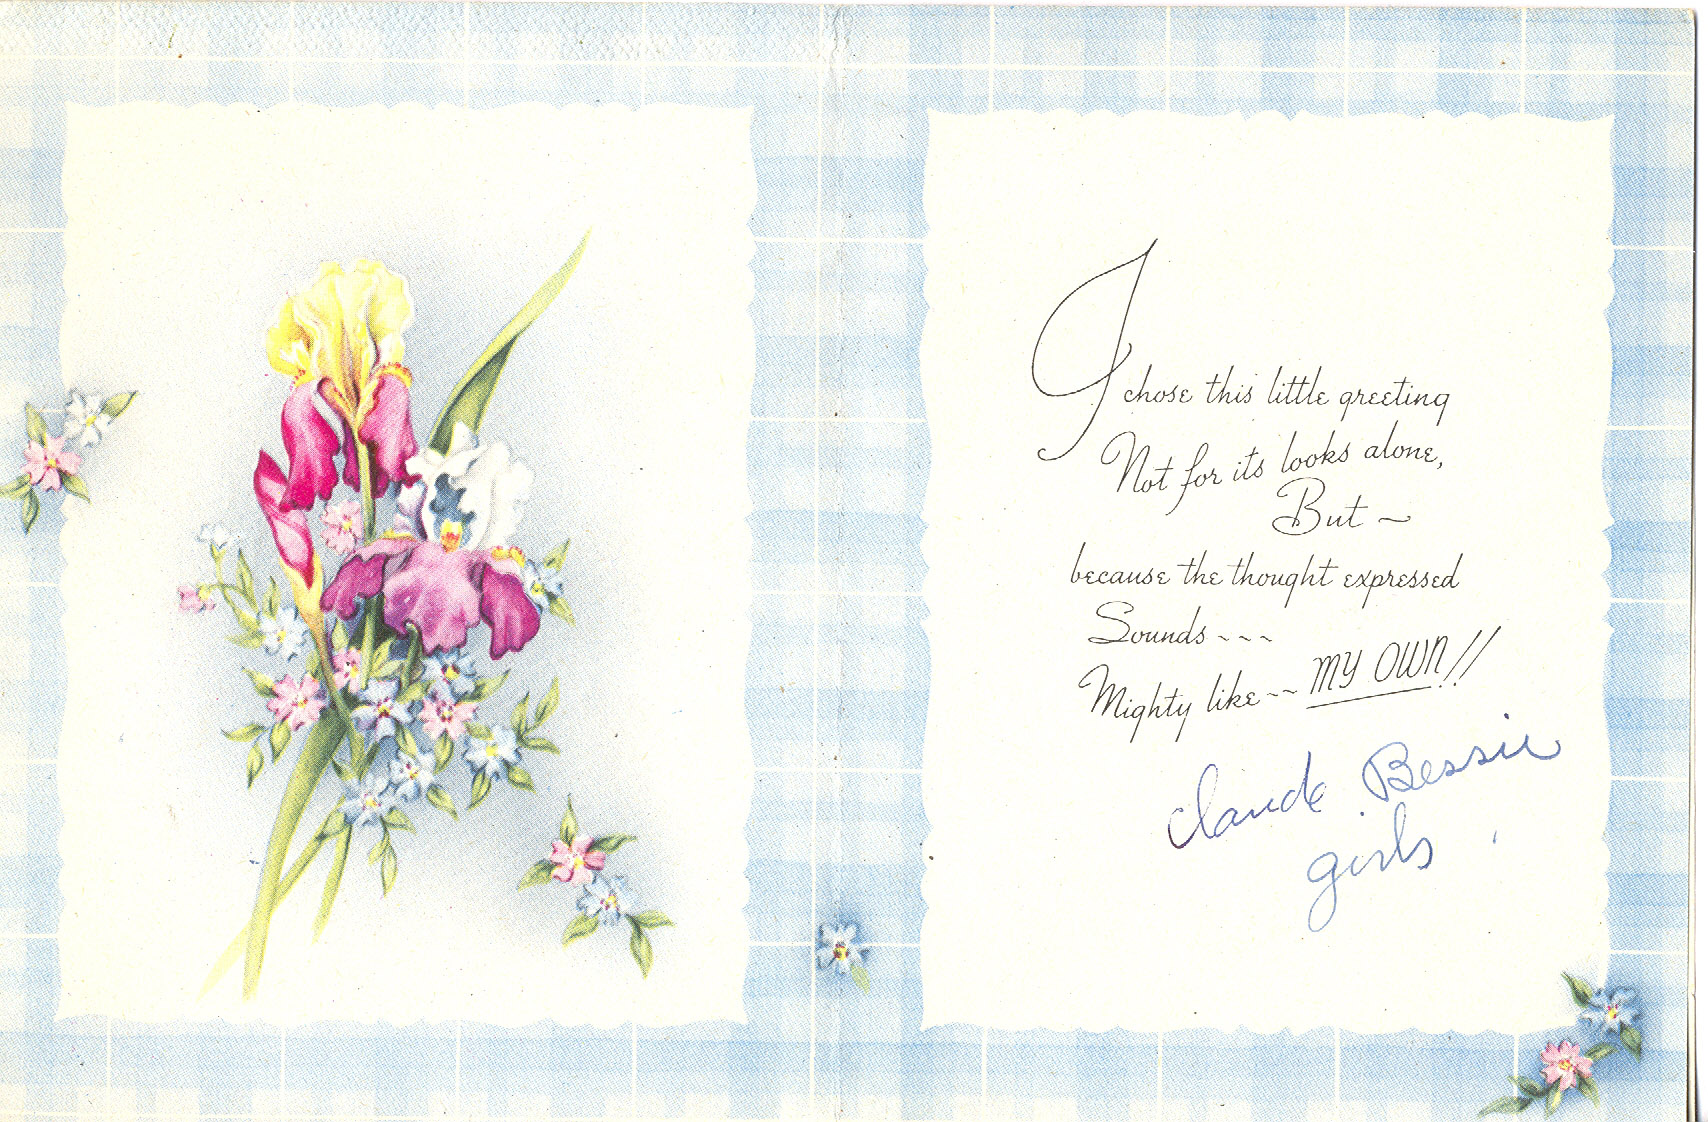 I chose this little greeting
Not for its looks alone,
But ~
because the thought expressed
Sounds ~ ~ ~
Mighty like ~ ~ MY OWN!!
Claude Bessie
girls